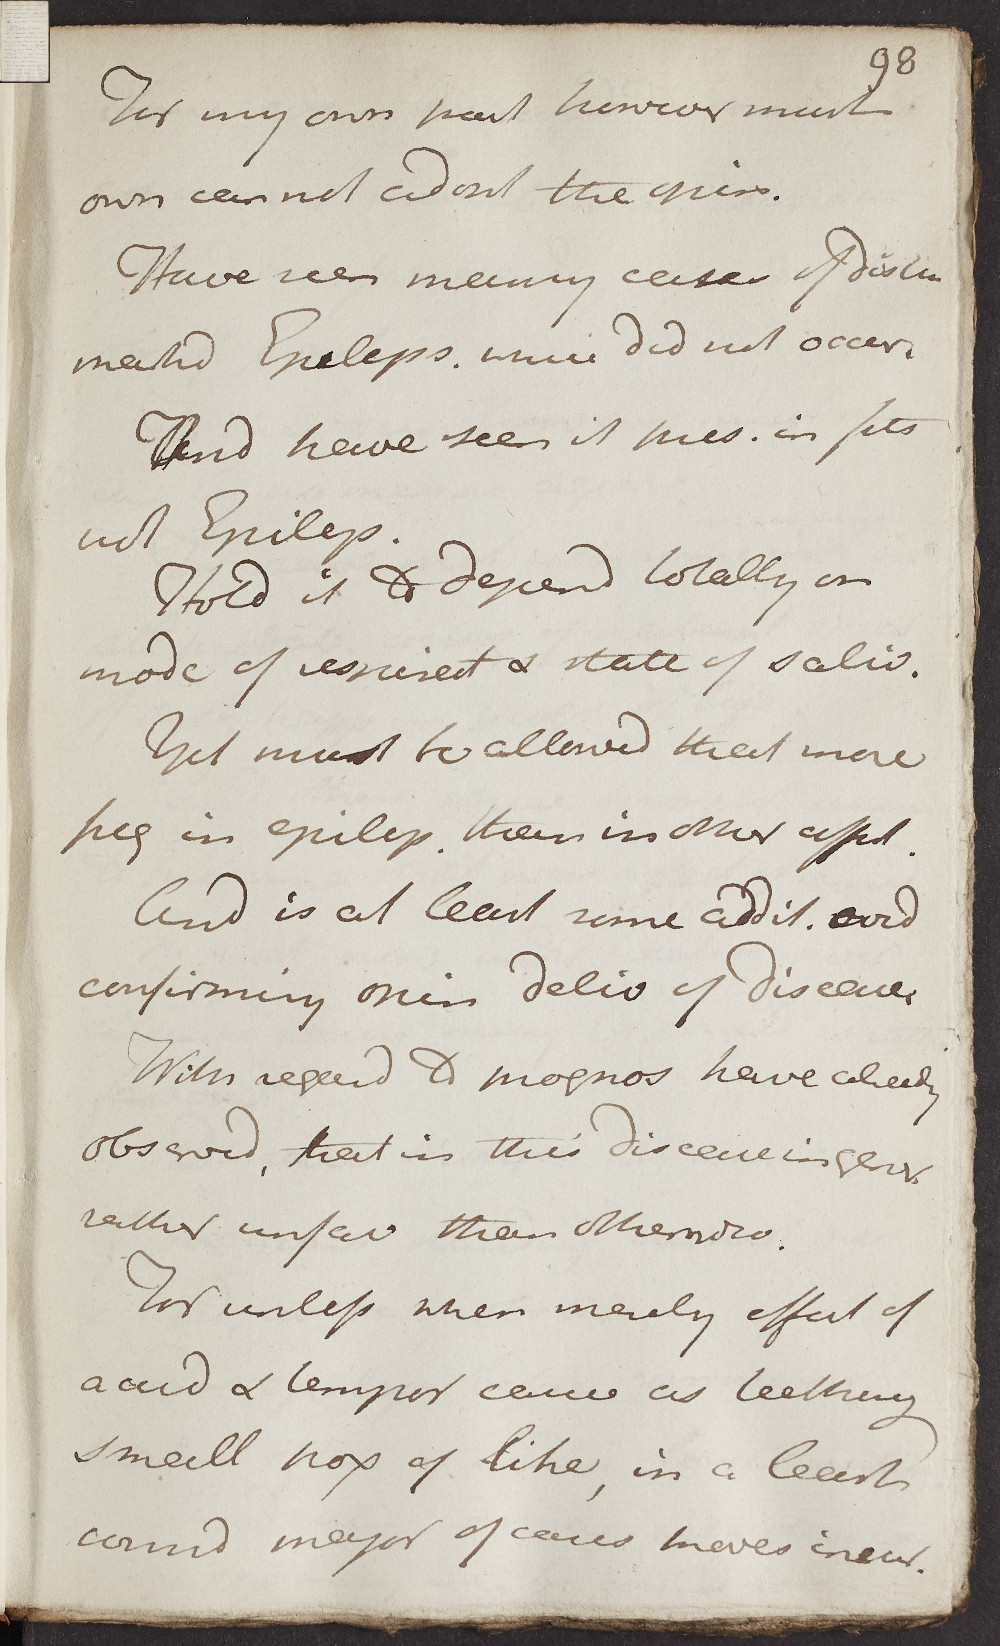 98
For my own part however must
own can not adopt the opin.
Have seen many cases of distin
marked Epileps. where did not occur.
And have seen it pres. in fits
not Epilep.
Hold it to depend totally on
mode of respirat & state of saliv.
Yet must be allowed that more
freq in epilep. than in other affect.
And is at least some addit. evid
confirming opin deliv of disease.
With regard to prognos have already
observed, that in this disease in gener
rather unfav than otherwise.
For unless when merely effect of
accid & tempor cause as teething
small pox or like, in a least
cound major of cases proves incur.